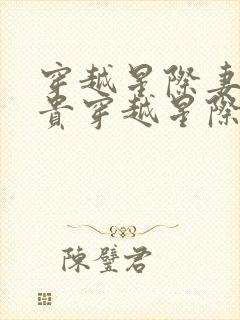 穿越星際妻
貴穿越星際
陳璧君